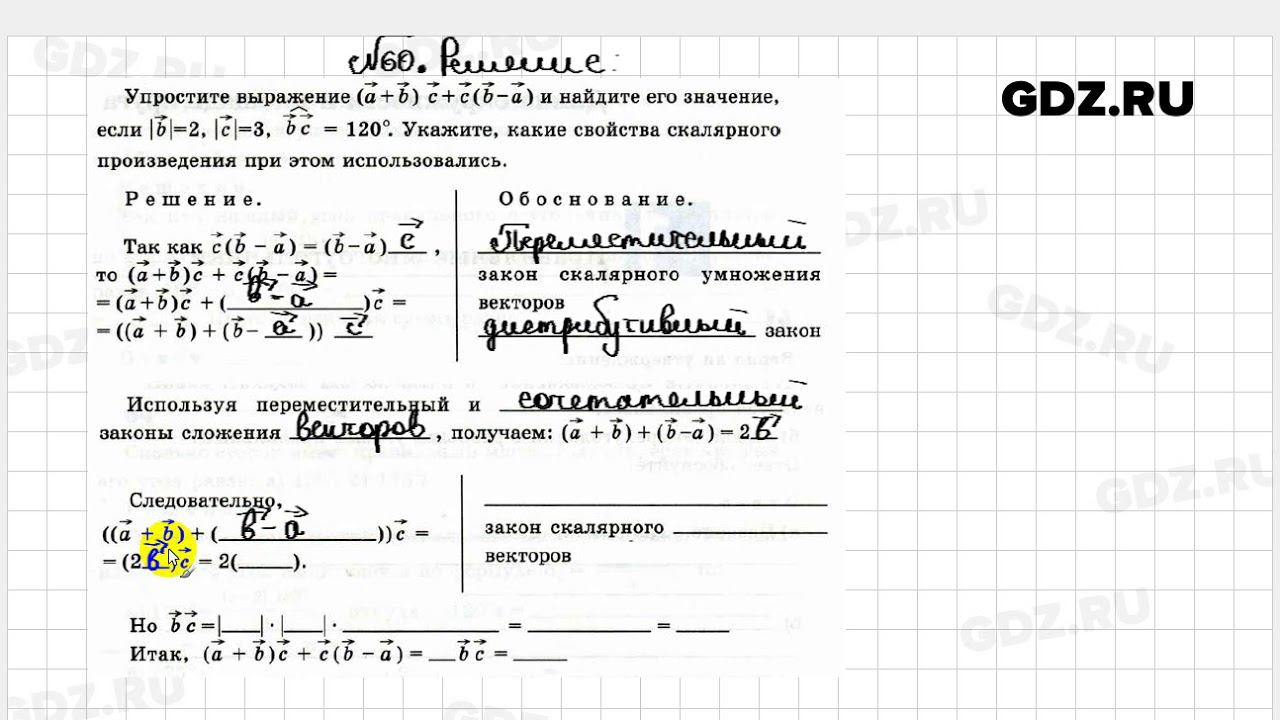 №60. Решение:
GDZ.RU
Упростите выражение (a⃗+b⃗) c⃗+c⃗(b⃗−a⃗) и найдите его значение,
если |b⃗|=2, |c⃗|=3, b⃗c⃗ = 120°. Укажите, какие свойства скалярного
произведения при этом использовались.
Решение.
Обоснование.
Так как c⃗(b⃗ − a⃗) = (b⃗−a⃗) c⃗,
то (a⃗+b⃗)c⃗ + c⃗(b⃗ − a⃗) =
= (a⃗+b⃗)c⃗ + (b⃗ − a⃗)c⃗ =
= ((a⃗ + b⃗) + (b⃗− a⃗)) c⃗
Переместительный
закон скалярного умножения
векторов
дистрибутивный закон
Используя переместительный и сочетательный
законы сложения векторов, получаем: (a⃗ + b⃗) + (b⃗−a⃗) = 2 b⃗
Следовательно,
((a⃗ + b⃗) + (b⃗ − a⃗))c⃗ =
= (2 b⃗)c⃗ = 2(____).
____
закон скалярного ____
векторов
Но b⃗ c⃗ =|___| · |___| · ____ = ____ = ____
Итак, (a⃗ + b⃗)c⃗ + c⃗(b⃗ − a⃗) = __ b⃗ c⃗ = ____
GDZ.RU
GDZ.RU
GDZ.RU
GDZ.RU
GDZ.RU
GDZ.RU